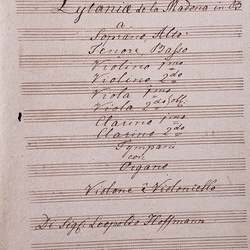 Lytaniæ de la Madona in B
a
Soprano, Alto.
Tenore, Basso
Violino 1mo
Violino 2do
Viola 1mo
Viola 2do
Clarino 1mo
Clarino 2do
Tympani
con
Organo
Violone è Violoncello
Di Sigr: Leopoldo Hoffmann